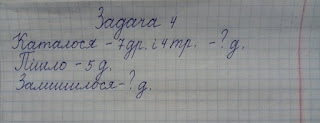 Задача 4
Каталося - 7др. і 4 тр. - ? д.
Пішло - 5 д.
Залишилося - ? д.